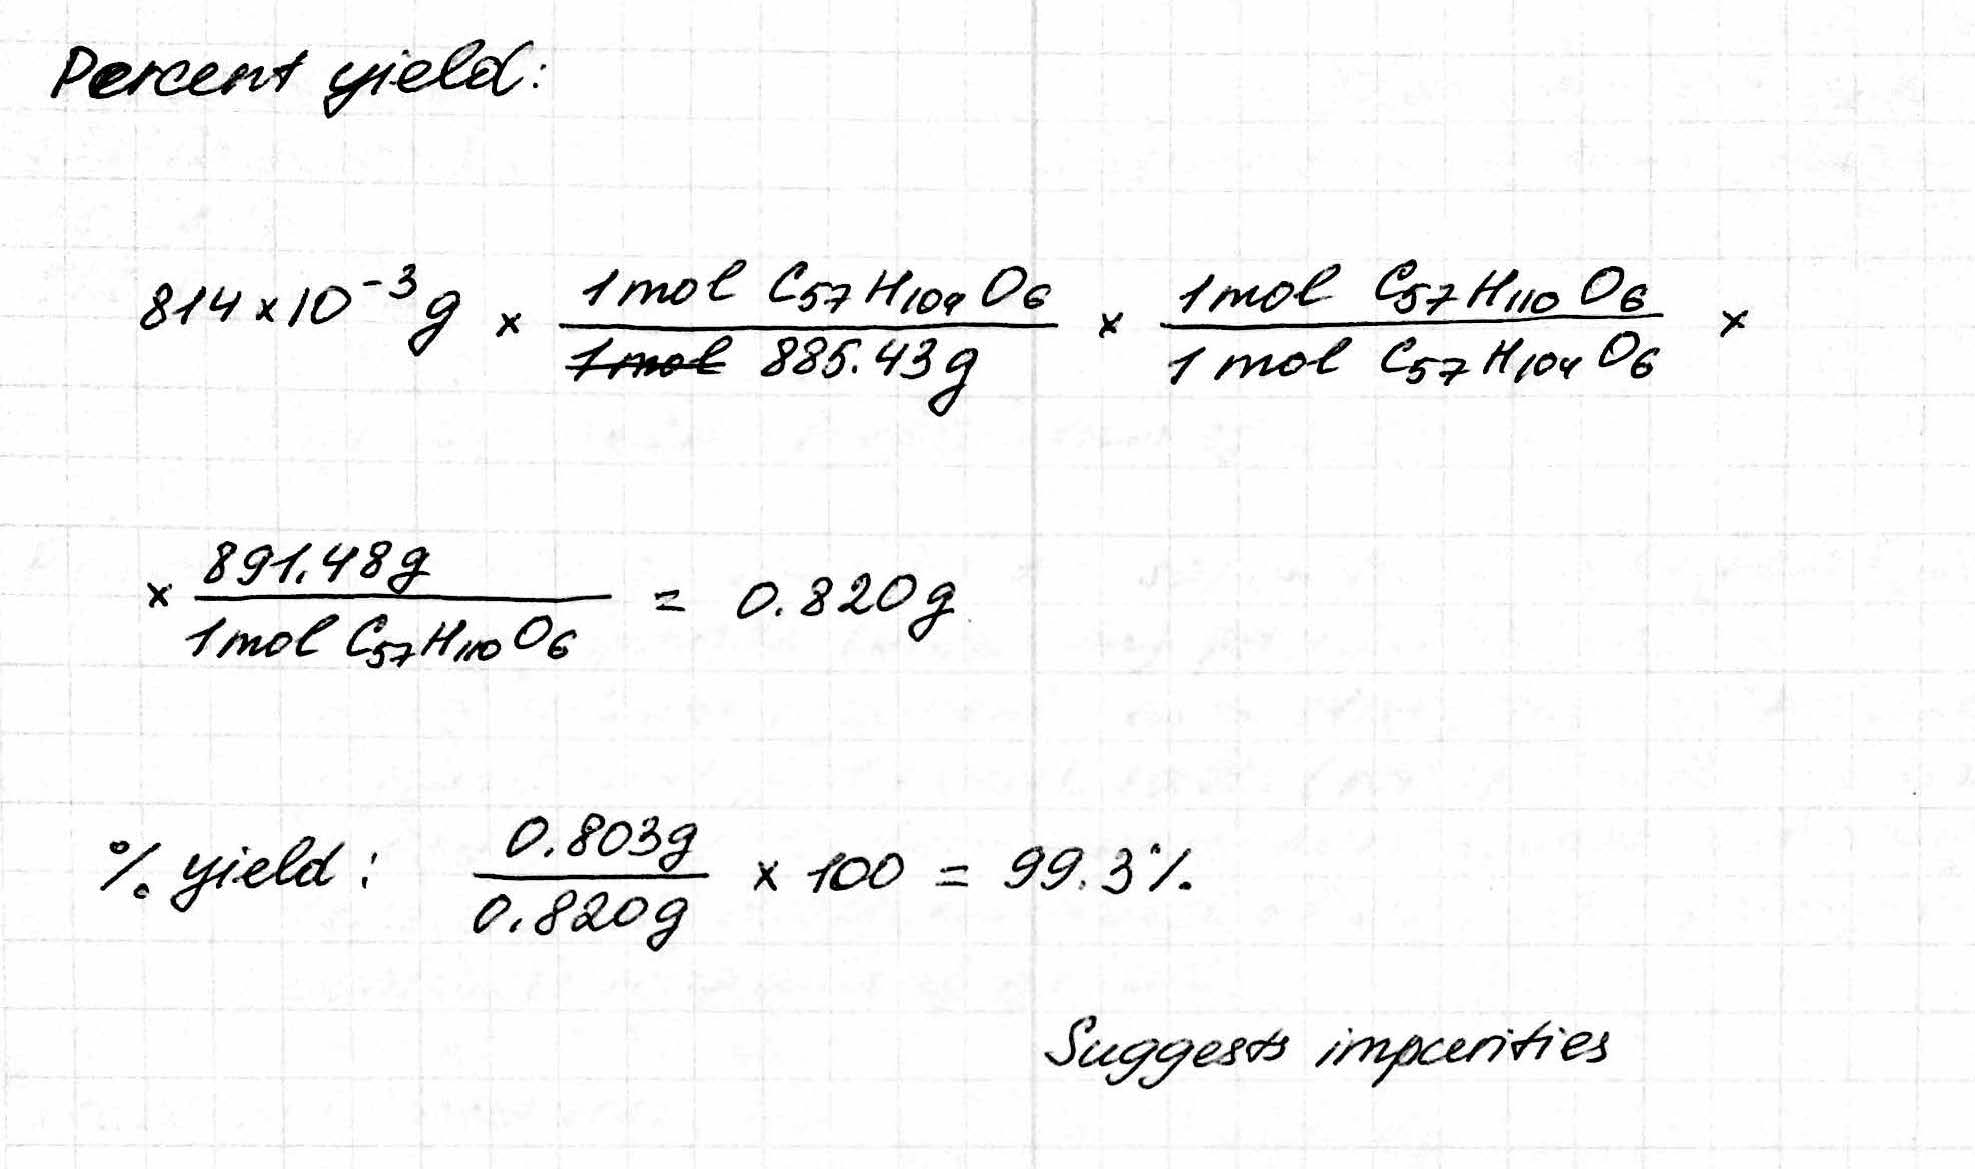 Percent yield:
814 × 10⁻³ g × (1 mol C₅₇H₁₀₄O₆ / ~~1 mol~~ 885.43 g) × (1 mol C₅₇H₁₁₀O₆ / 1 mol C₅₇H₁₀₄O₆) ×
× (891.48 g / 1 mol C₅₇H₁₁₀O₆) = 0.820 g
% yield: (0.803 g / 0.820 g) × 100 = 99.3%
Suggests impurities